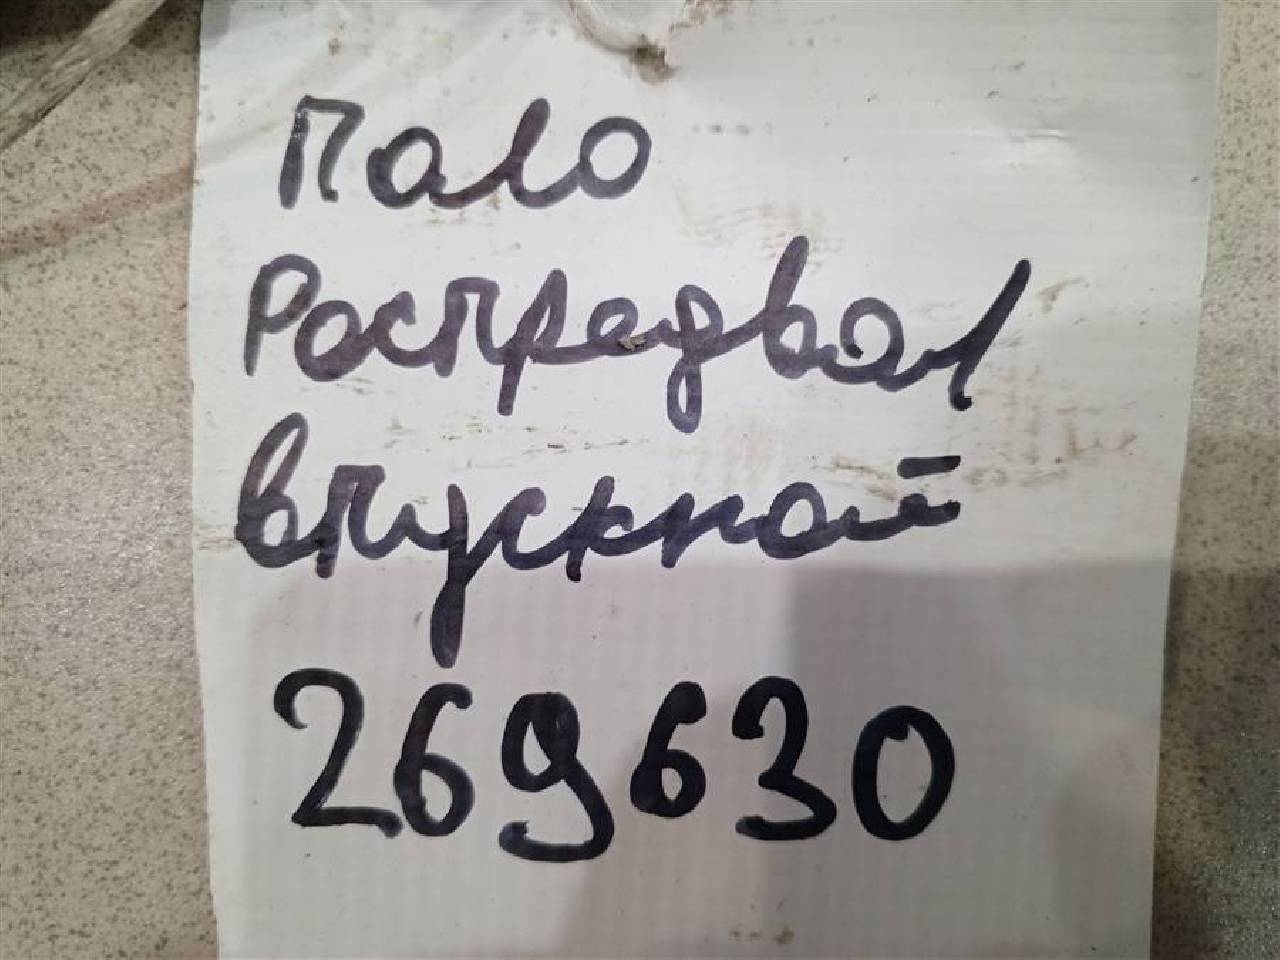 Пало
Распредвал
впускной
269630